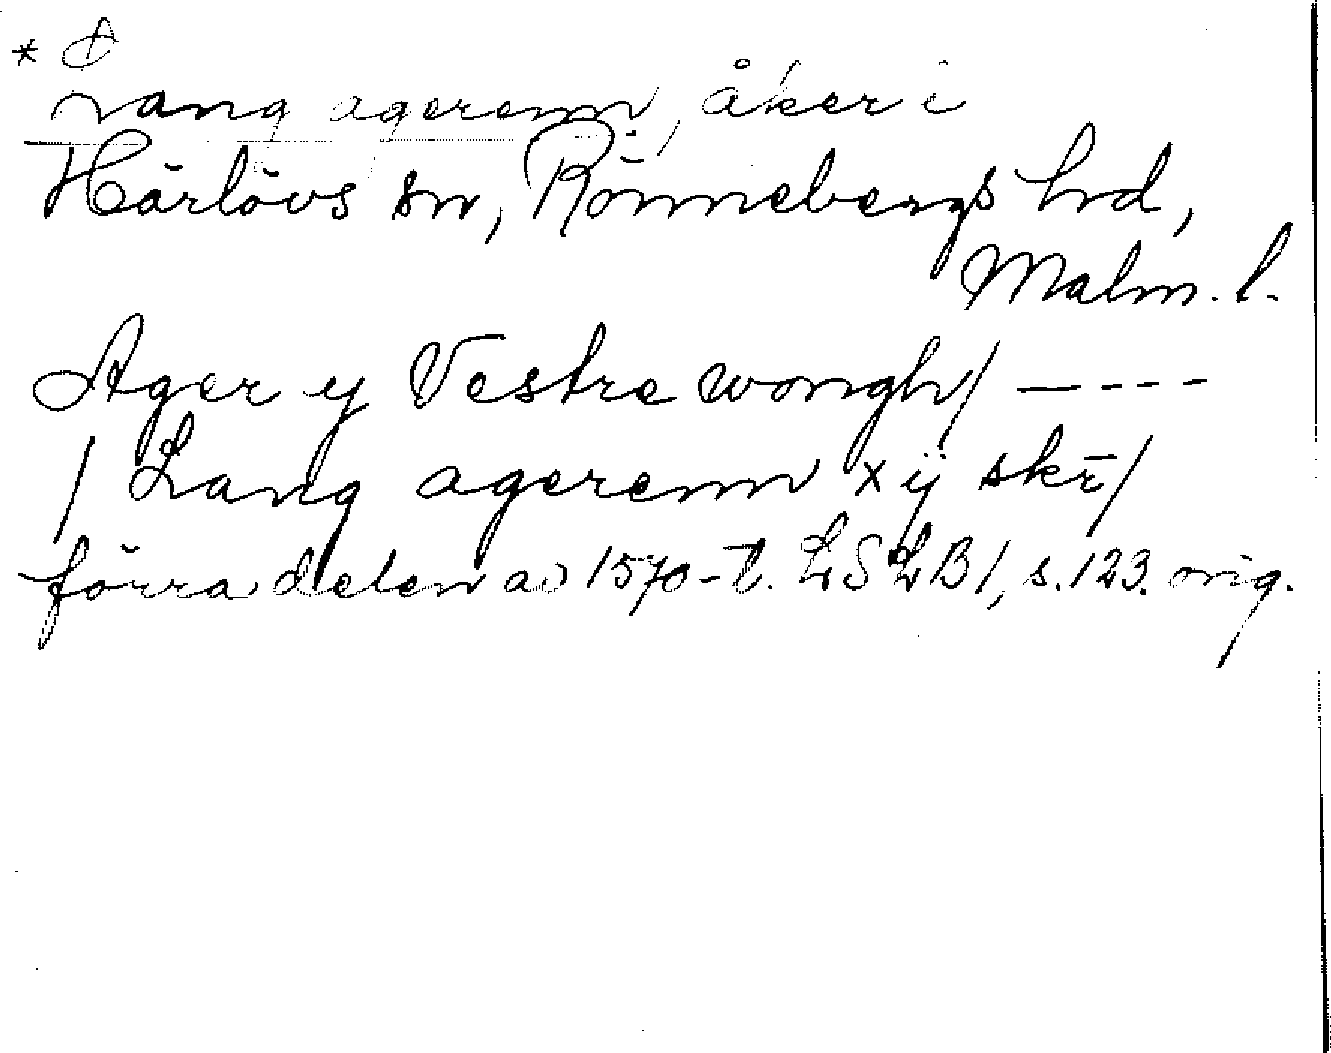 *
Lang agerenn, åker i
Härlövs sn, Rönnebergs hd,
Malm. l.
Ager y Vestre wongh/ - - - -
/ Lang agerenn xij skr̄/
förra delen av 1570-t. LSLB1, s. 123. orig.